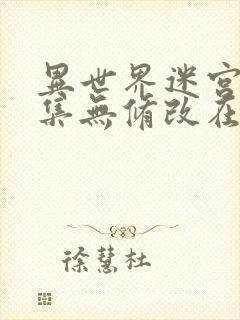 異世界迷宮
集無修改在
徐慧杜